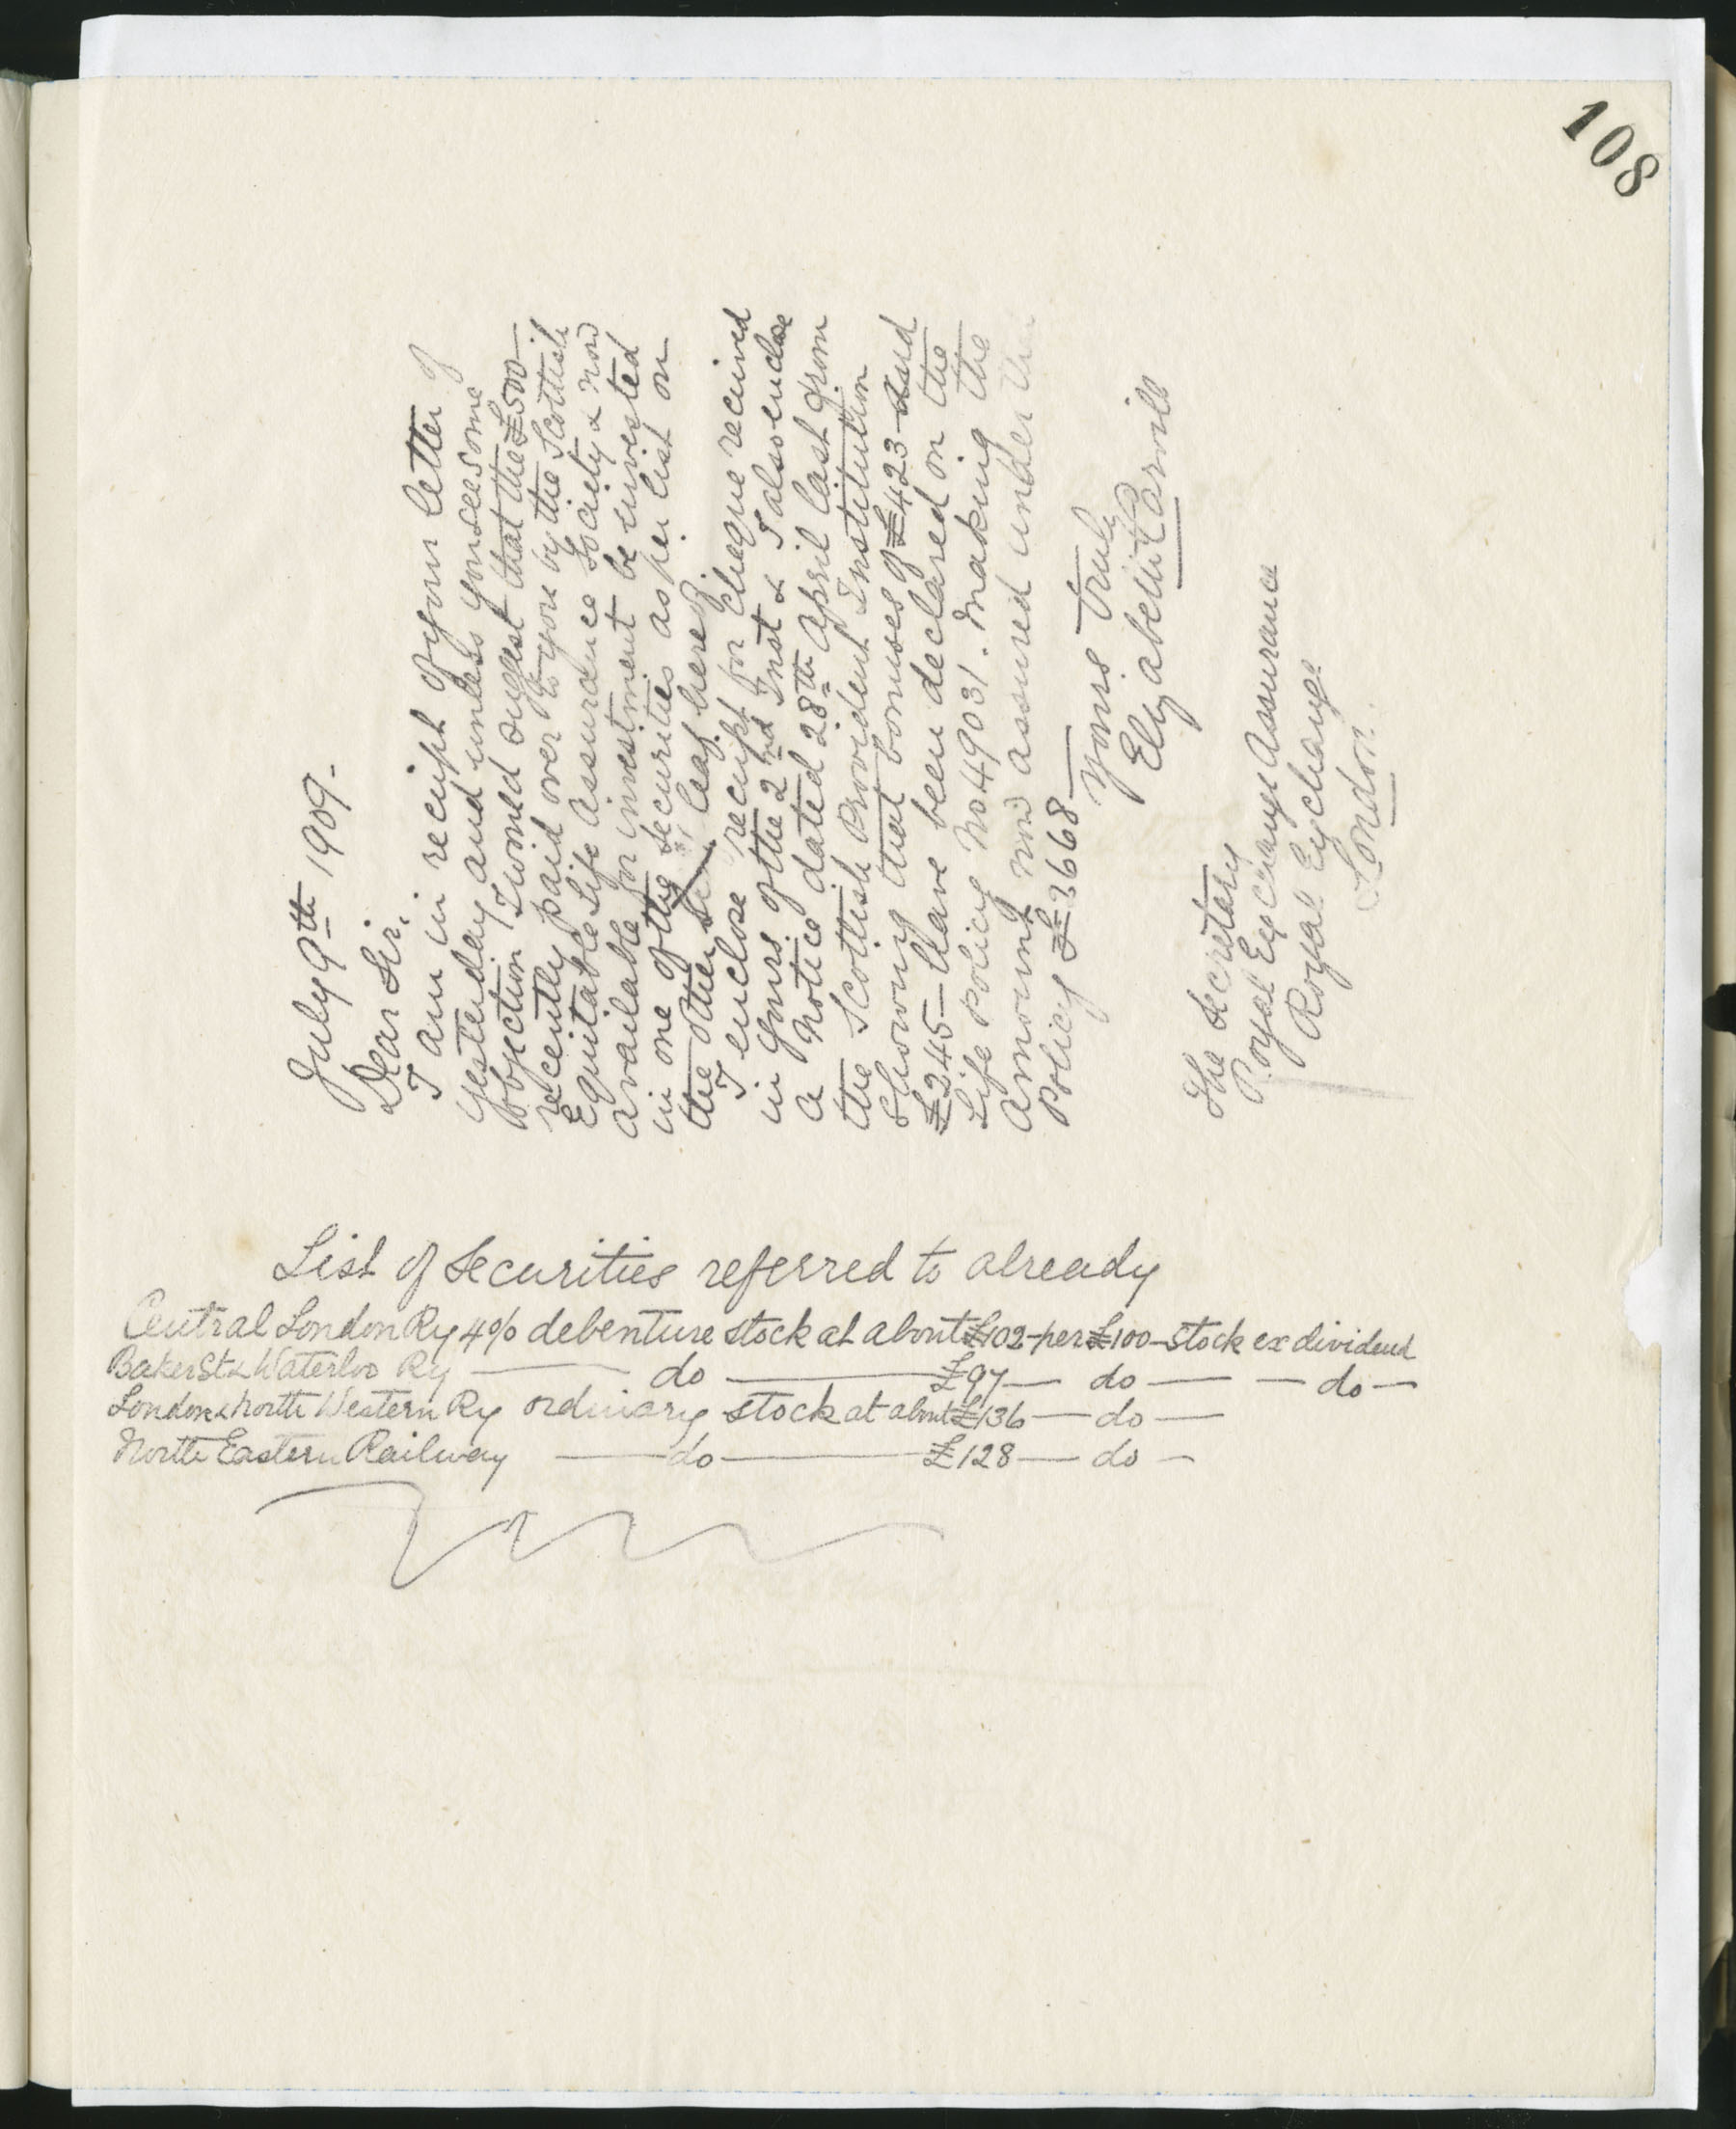 108
July 9th 1909-
Dear Sir.
I am in receipt of your letter of
yesterday and unless you see some
objection I would suggest that the £500-
recently paid over to you by the Scottish
Equitable Life Assurance Society & now
available for investment be invested
in one of the securities as per list on
the other leaf hereof.
I enclose receipt for cheque received
in yours of the 2nd Inst & I also enclose
a notice dated 28th April last from
the Scottish Provident Institution
showing that bonuses of £423 and
£245- have been declared on the
Life Policy No 49031. making the
amount now assured under the
Policy £2668-
Yours truly
Elizabeth Carvill
The Secretary
Royal Exchange Assurance
Royal Exchange
London.
List of Securities referred to already
Central London Ry 4% debenture stock at about £102-per £100-stock ex dividend
Baker St & Waterloo Ry — do — £97 — do — — do —
London & North Western Ry ordinary stock at about £136 — do —
North Eastern Railway — do — £128 — do —